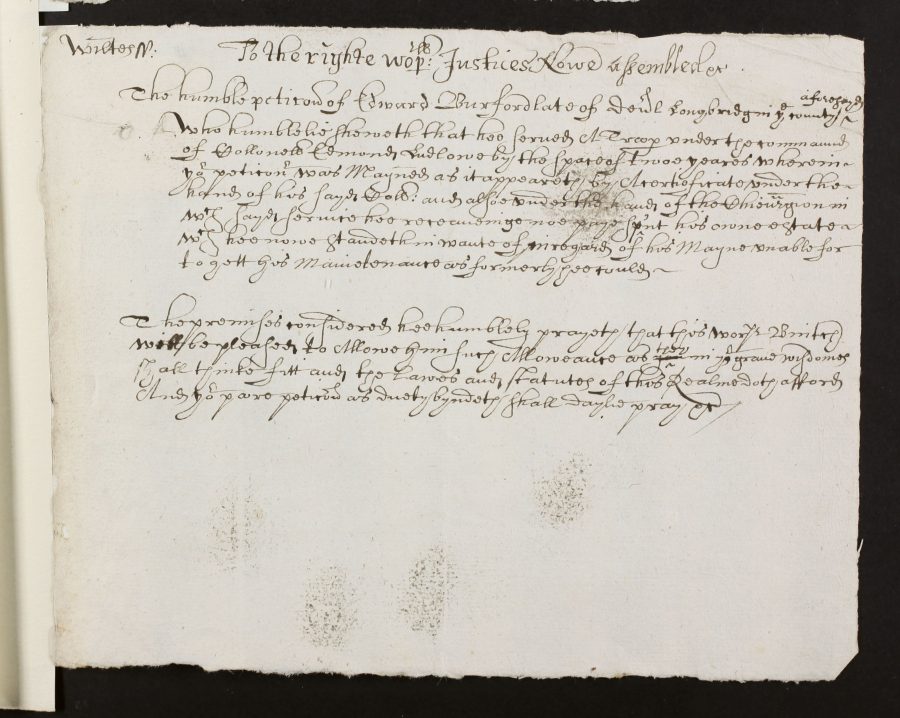 Wiltess:
To the righte wopll: Justices Nowe assembled &c
The humble peticon of Edward Burford late of Devll Longbridg in ye county aforesayd
Who humblelie sheweth that hee served A Troop under the command
of Collonell Edmond Ludlowe by the space of twoe yeares wherein
yor peticonr was Mayned as it appeareth by A certeficate under the
hand of his sayd Coll: and alsoe under the hand of the Chieurgion in
wch sayd service hee receaveinge noe paye spent his owne estate
wch hee nowe standeth in wante of in regard of his Mayne unable for
to gett his Maintenance as formerly hee could
The premises considered hee humbly prayeth that this worsp Bentch
will be pleased to Allowe him such Alloweance as they in yor grave wisdomes
shall thinke fitt and the Lawes and statutes of this Realme doth afford
And yor poore peticonr as duety byndeth shall daylie pray &c